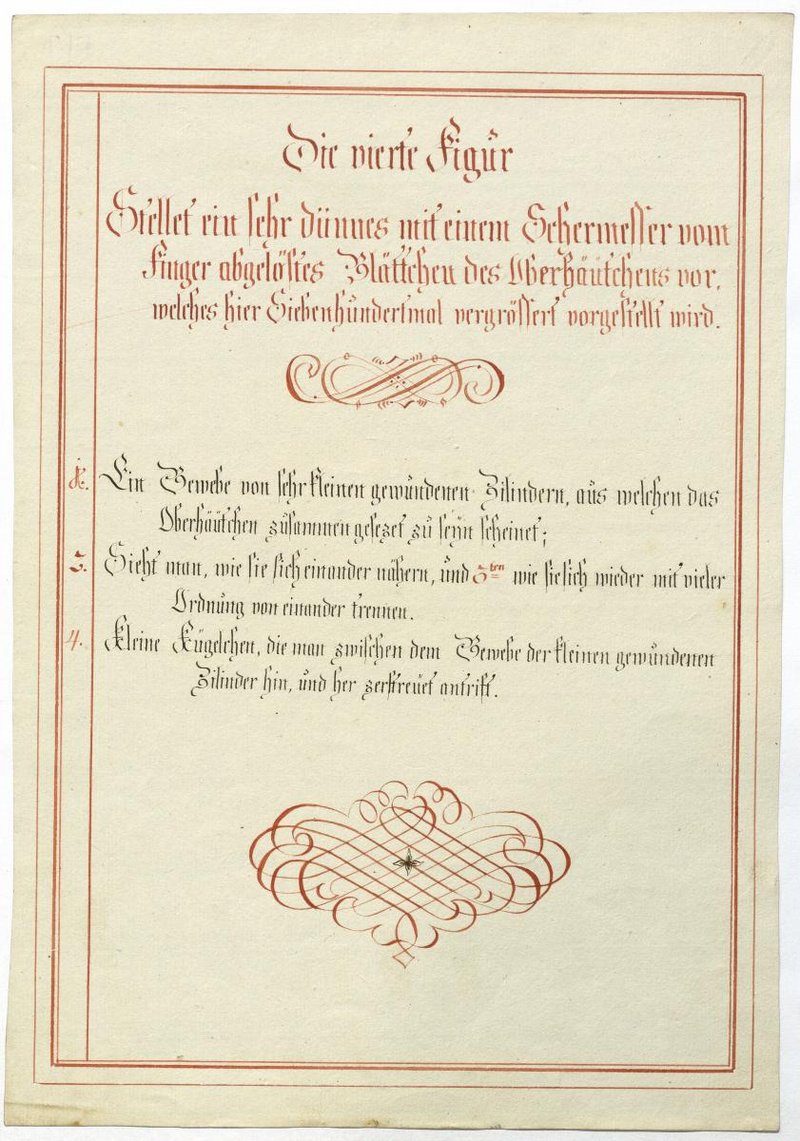 Die vierte Figůr
Stellet ein sehr dünnes mit einem Schermesser vom
Finger abgelöstes Blättchen des Oberhäůtchens vor,
welches hier Siebenhůndertmal vergrössert vorgestellt wird.
Ein Gewebe von sehr kleinen gewůndenen Zilindern, aůs welchen das
Oberhäůtchen zůsammen gesezet zů seÿn scheinet;
3. Sieht man, wie sie sich einander nähern, ůnd 3ten wie sie sich wieder mit vieler
Ordnůng von einander trennen.
4. Kleine Kügelchen, die man zwischen dem Gewebe der kleinen gewůndenen
Zilinder hin, ůnd her zerstreůet antrift.